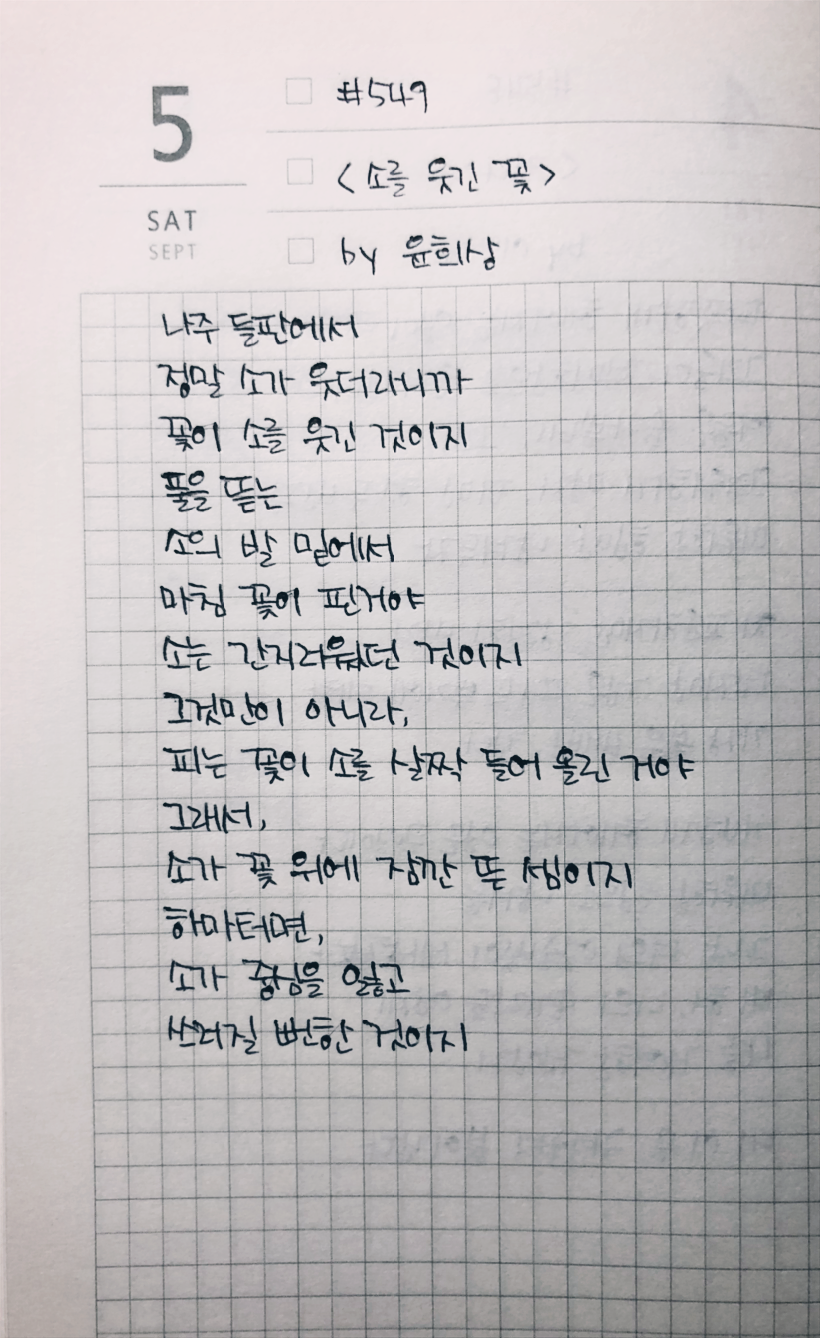 5
SAT
SEPT
#549
<소를 웃긴 꽃>
by 윤희상
나주 들판에서
정말 소가 웃더라니까
꽃이 소를 웃긴 것이지
풀을 뜯는
소의 발 밑에서
마침 꽃이 핀거야
소는 간지러웠던 것이지
그것만이 아니라,
피는 꽃이 소를 살짝 들어 올린 거야
그래서,
소가 꽃 위에 잠깐 뜬 셈이지
하마터면,
소가 중심을 잃고
쓰러질 뻔한 것이지